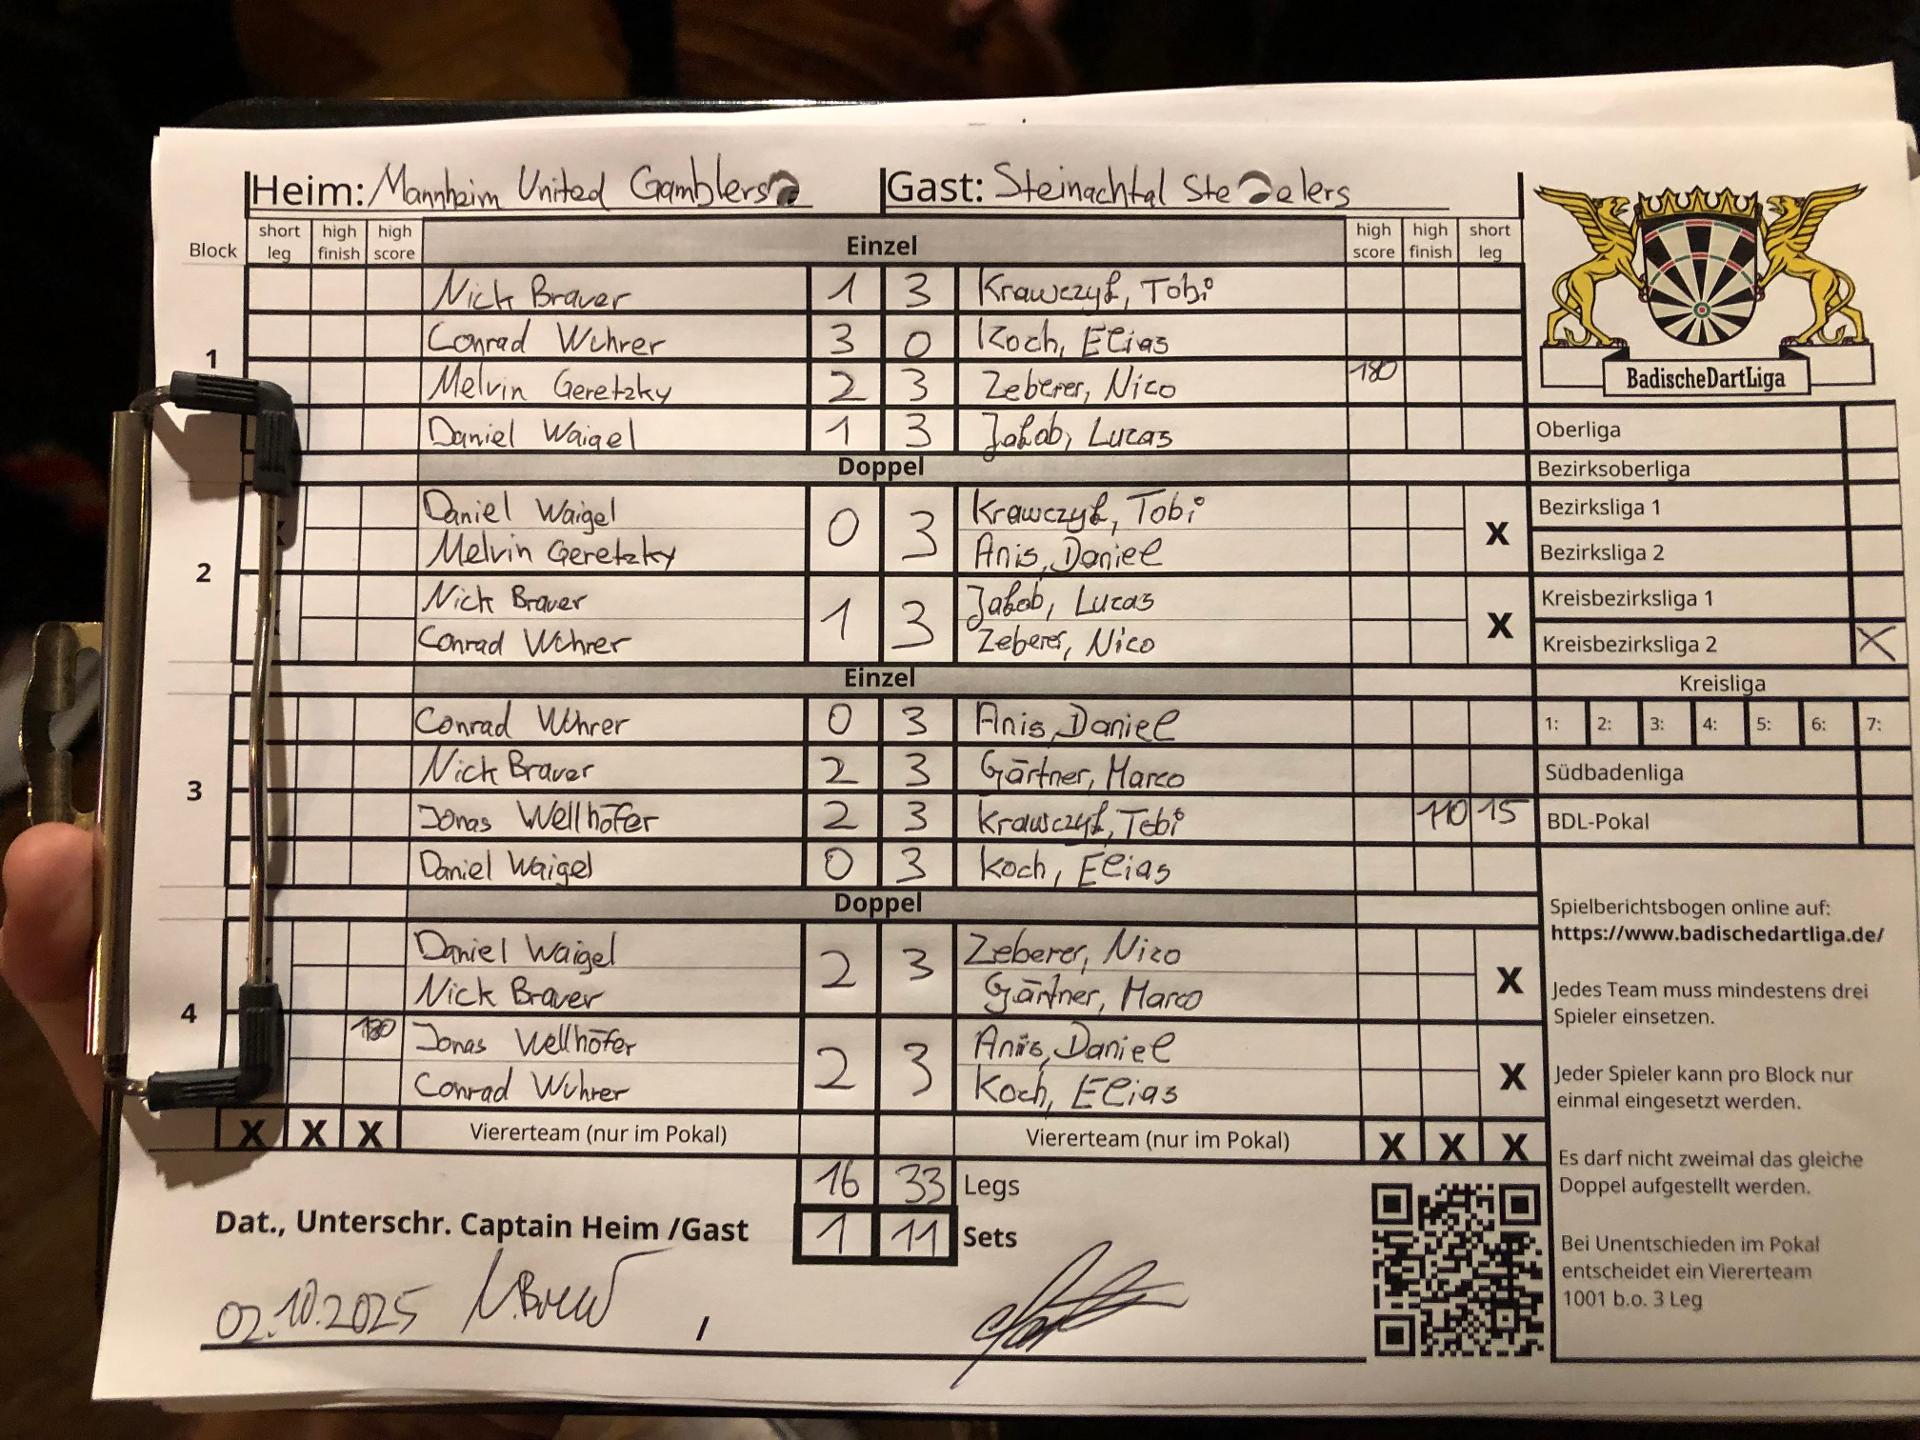 Heim: Mannheim United Gamblers Gast: Steinachtal Steelers
Block short leg high finish high score Einzel high score high finish short leg
Nick Brauer 1 3 Krawczyk, Tobi
1 Conrad Wührer 3 0 Koch, Elias
Melvin Geretzky 2 3 Zeberer, Nico 180
Daniel Waigel 1 3 Jakob, Lucas
Doppel
Daniel Waigel 0 3 Krawczyk, Tobi X
Melvin Geretzky Anis, Daniel
2
Nick Brauer 1 3 Jakob, Lucas X
Conrad Wührer Zeberer, Nico
Einzel
Conrad Wührer 0 3 Anis, Daniel
Nick Brauer 2 3 Gärtner, Marco
3
Jonas Wellhöfer 2 3 Krawczyk, Tobi 110 15
Daniel Waigel 0 3 Koch, Elias
Doppel
Daniel Waigel 2 3 Zeberer, Nico X
Nick Brauer Gärtner, Marco
4
180 Jonas Wellhöfer 2 3 Anis, Daniel X
Conrad Wührer Koch, Elias
X X X Viererteam (nur im Pokal) Viererteam (nur im Pokal) X X X
16 33 Legs
Dat., Unterschr. Captain Heim /Gast 1 11 Sets
02.10.2025 /
BadischeDartLiga
Oberliga
Bezirksoberliga
Bezirksliga 1
Bezirksliga 2
Kreisbezirksliga 1
Kreisbezirksliga 2 X
Kreisliga
1: 2: 3: 4: 5: 6: 7:
Südbadenliga
BDL-Pokal
Spielberichtsbogen online auf:
https://www.badischedartliga.de/
Jedes Team muss mindestens drei
Spieler einsetzen.
Jeder Spieler kann pro Block nur
einmal eingesetzt werden.
Es darf nicht zweimal das gleiche
Doppel aufgestellt werden.
Bei Unentschieden im Pokal
entscheidet ein Viererteam
1001 b.o. 3 Leg